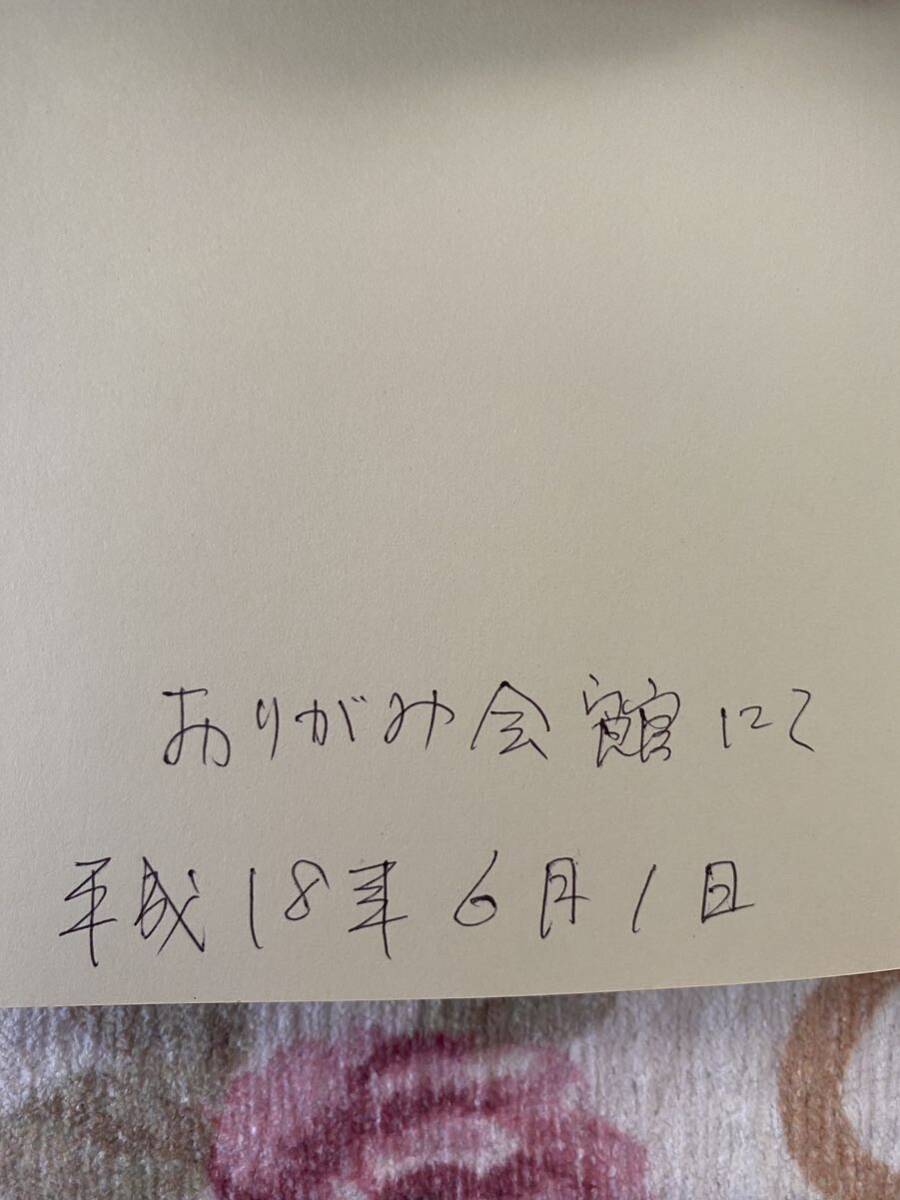 おりがみ会館にて
平成18年6月1日